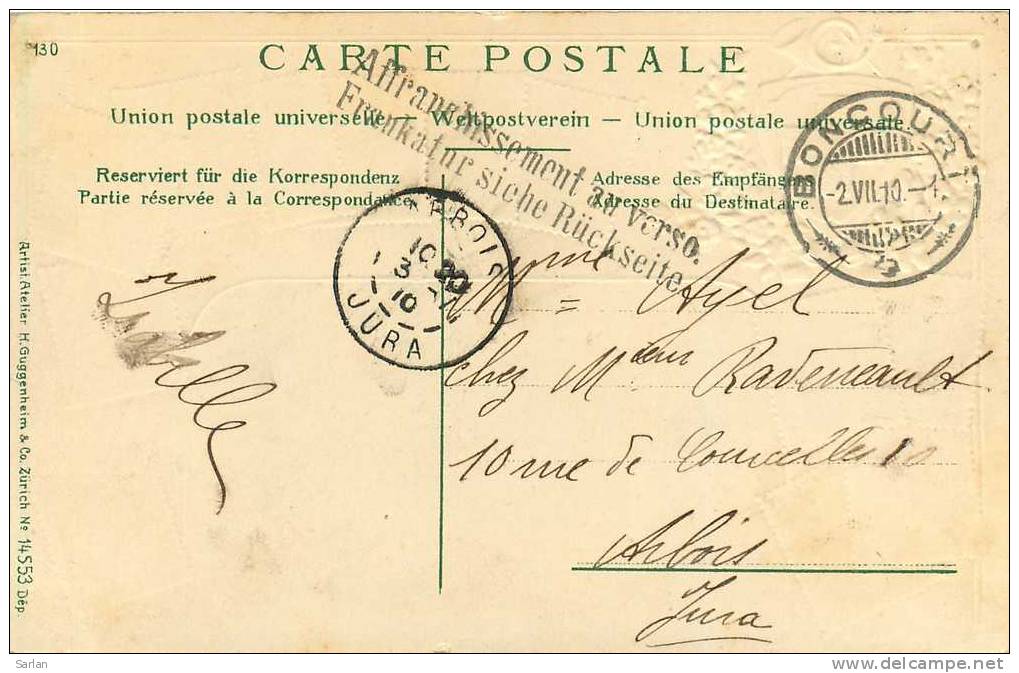 130
CARTE POSTALE
Union postale universelle — Weltpostverein — Union postale universale.
Affranchissement au verso.
Frankatur siehe Rückseite.
BONCOURT
-2.VII.10.-
Reserviert für die Korrespondenz
Partie réservée à la Correspondance.
Adresse des Empfängers
Adresse du Destinataire.
ARBOIS
10
3
10
JURA
Mme = Ayel
chez Msieur Radeneault
10 rue de Courcelles 10
Arbois
Jura
Artist. Atelier H. Guggenheim & Co. Zürich No 14553 Dép.
Sarlan
delcampe.net